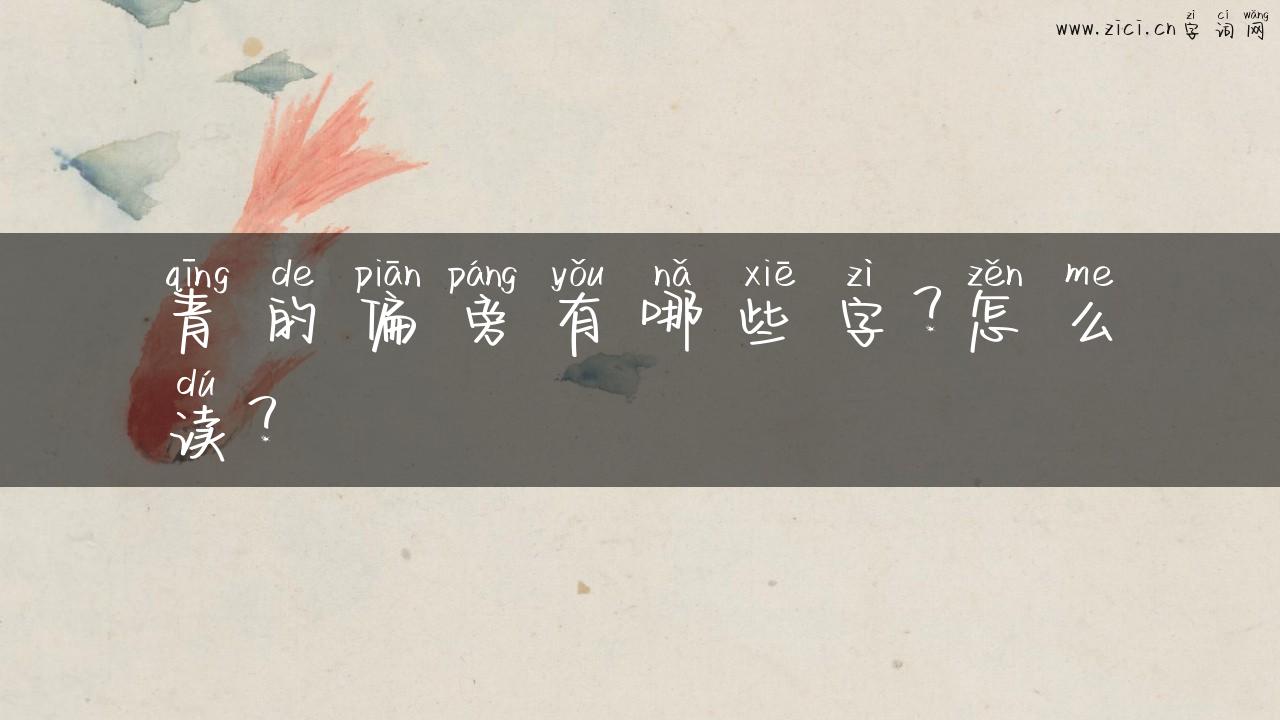 zì cí wǎng
www.zici.cn 字词网
qīng de piān páng yǒu nǎ xiē zì zěn me
青的偏旁有哪些字？怎么
dú
读？